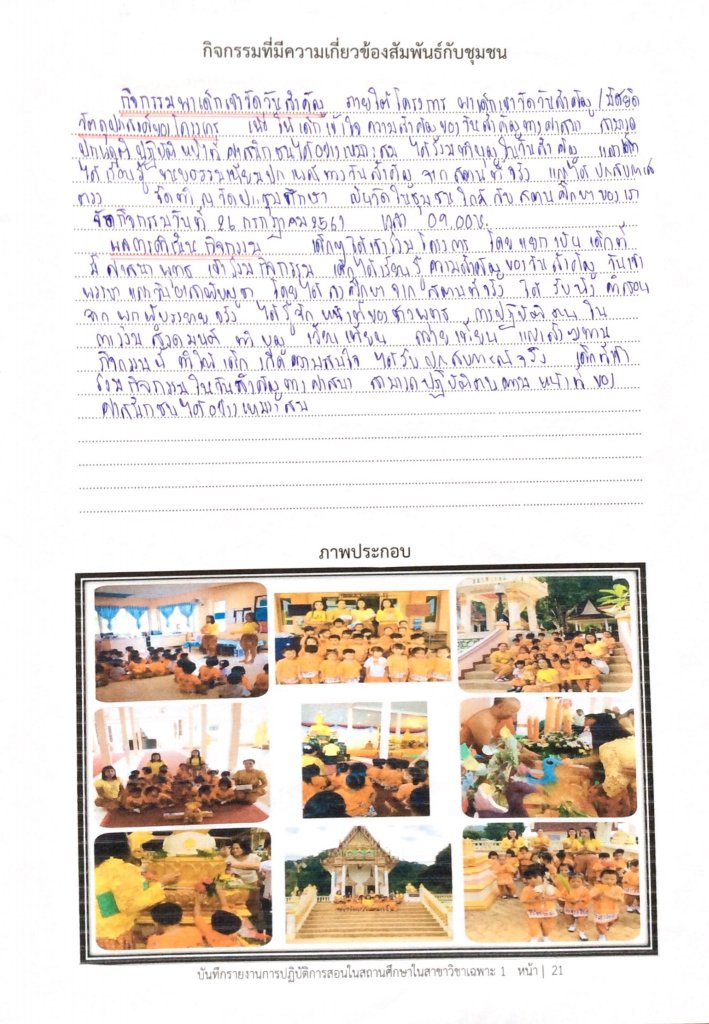 กิจกรรมที่มีความเกี่ยวข้องสัมพันธ์กับชุมชน
กิจกรรมพาเด็กเข้าวัดวันสำคัญ ภายใต้โครงการ พาเด็กเข้าวัดวันสำคัญ /
วัตถุประสงค์ของโครงการ เพื่อให้เด็กเข้าใจความสำคัญของวันสำคัญทางศาสนา สามารถ
ปฏิบัติหน้าที่ศาสนิกชนได้อย่างเหมาะสม ได้ร่วมทำบุญในวันสำคัญ และเด็ก
ได้เรียนรู้ขนบธรรมเนียมประเพณีทางวันสำคัญ จากสถานที่จริง และได้ประสบการณ์
ตรง จัดทำ ณ วัดประชุมศึกษา เป็นวัดในชุมชนใกล้กับสถานศึกษาของเรา
จัดกิจกรรมวันที่ 26 กรกฎาคม 2561 เวลา 09.00น.
ผลการดำเนินกิจกรรม เด็กๆได้เข้าร่วมโครงการ โดยแยกเป็นเด็กที่
มีศาสนาพุทธ เข้าร่วมกิจกรรม เด็กได้เรียนรู้ความสำคัญของวันสำคัญ วันเข้า
พรรษา และวันอาสาฬหบูชา โดยได้ลงศึกษาจากสถานที่จริง ได้รับฟังคำสอน
จากพระผู้บรรยายจริง ได้รู้จักหน้าที่ของชาวพุทธ การปฏิบัติตนใน
การร่วมสวดมนต์ ทำบุญ เวียนเทียน ถวายเทียน และถวายทาน
กิจกรรมนี้ทำให้เด็กเกิดความสนใจ ได้รับประสบการณ์จริง เด็กที่เข้า
ร่วมกิจกรรมในวันสำคัญทางศาสนา สามารถปฏิบัติตนตามหน้าที่ของ
ศาสนิกชนได้อย่างเหมาะสม
ภาพประกอบ
บันทึกรายงานการปฏิบัติการสอนในสถานศึกษาในสาขาวิชาเฉพาะ 1 หน้า | 21